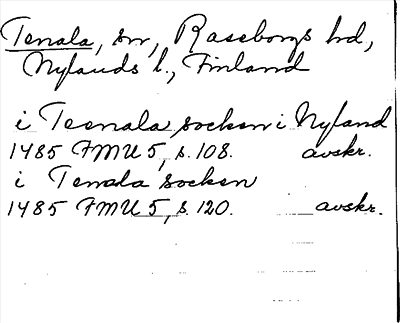 Tenala, sn, Raseborgs hd,
Nylands l., Finland
i Teenala socken i Nyland
1485 FMU 5, s. 108. avskr.
i Tenala socken
1485 FMU 5, s. 120. avskr.